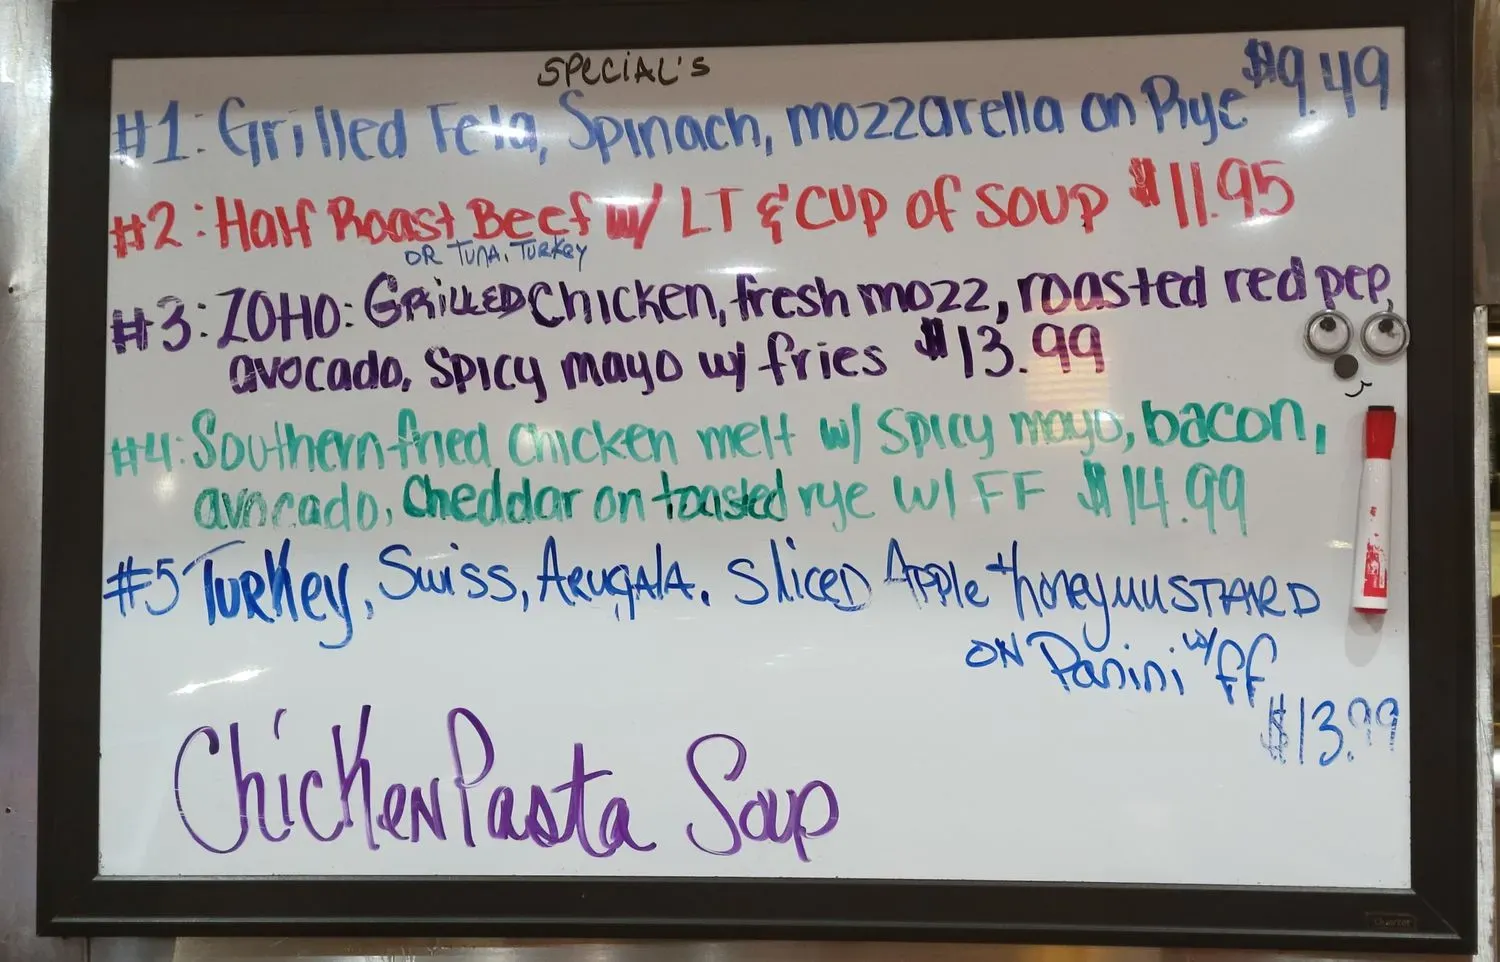 SPECIAL'S
#1: Grilled Feta, Spinach, mozzarella on Rye $9.49
#2: Half Roast Beef w/ LT & CUP OF SOUP $11.95
OR TUNA, TURKEY
#3: ZOHO: GRILLED Chicken, fresh mozz, roasted red pep,
avocado, spicy mayo w/ fries $13.99
#4: Southern fried chicken melt w/ spicy mayo, bacon,
avocado, Cheddar on toasted rye w/ FF $14.99
#5 Turkey, Swiss, ARUGALA, SlICED Apple + honeymUSTARD
ON Panini w/ FF
$13.99
Chicken Pasta Soup
Quartet